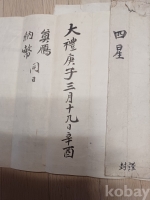 四星
謹封
大禮庚子三月十九日辛酉
奠鴈
納幣
同日
kobay